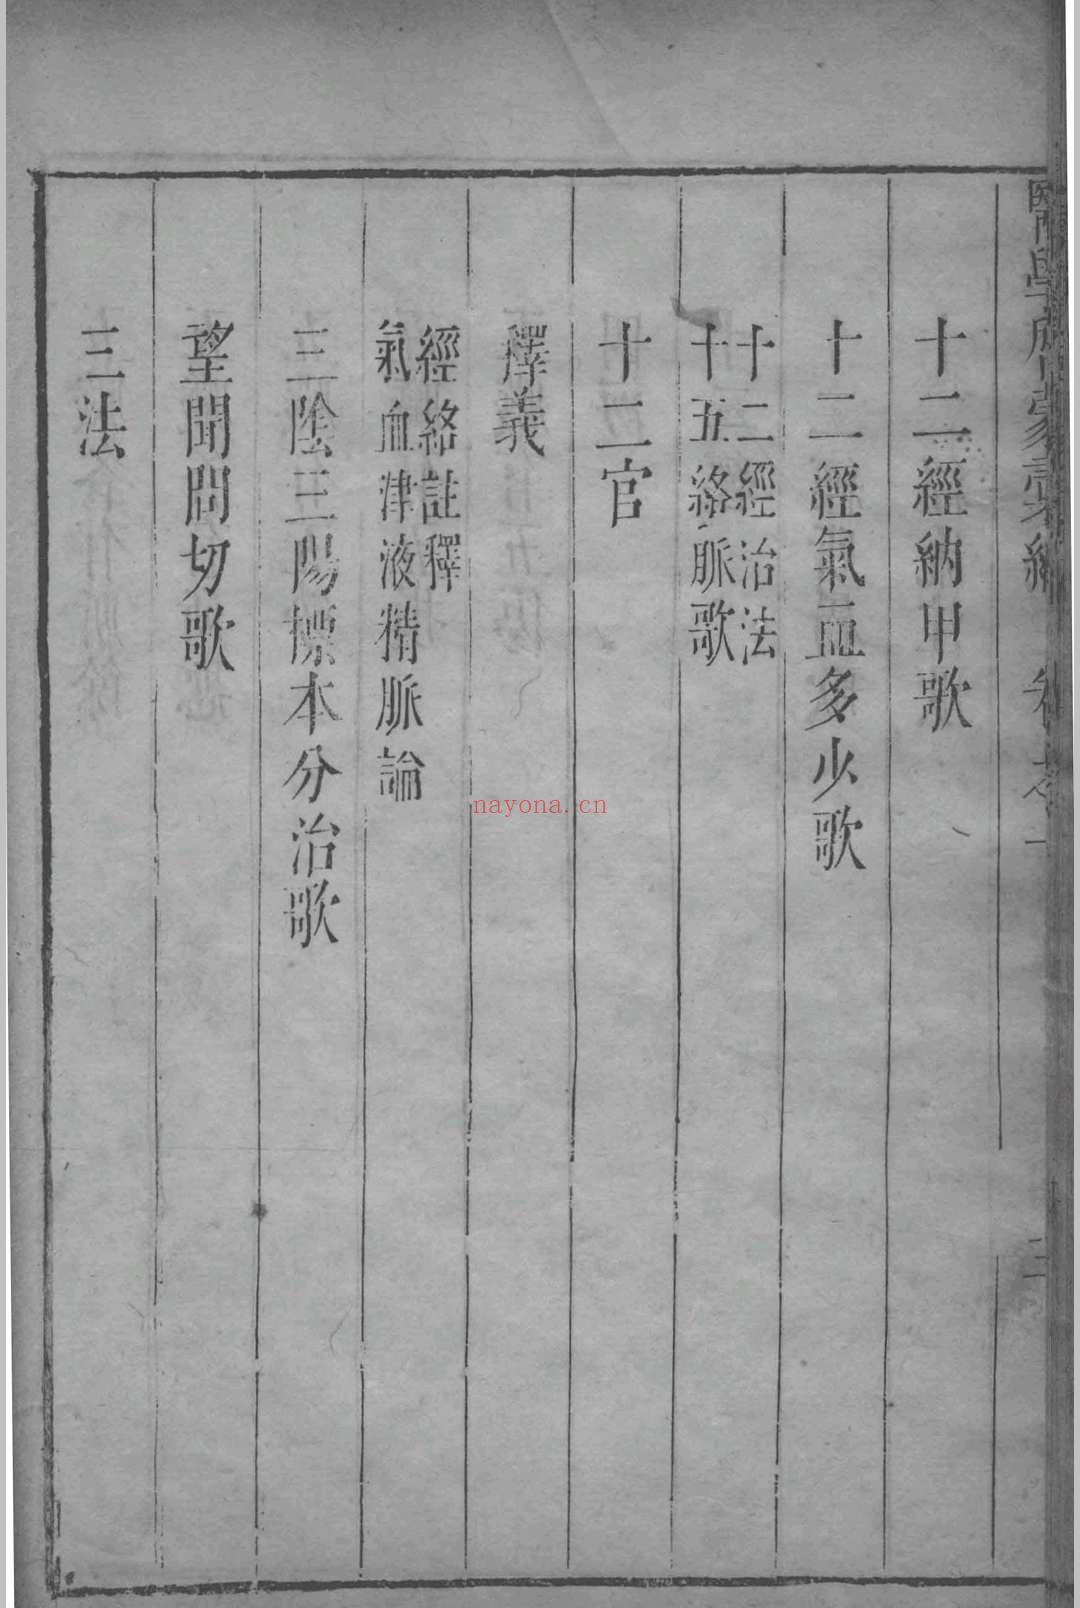 十二經納甲歌
十二經氣血多少歌
十二經治法
十五絡脈歌
十二官
釋義
經絡註釋
氣血津液精脈論
三陰三陽標本分治歌
望聞問切歌
三法
nayona.cn